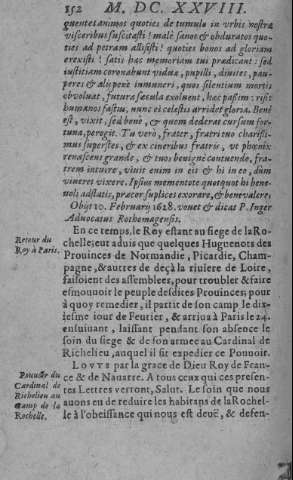 152 M. DC. XXVIII.
quentes animos quoties de tumulo in vrbis nostræ
visceribus suscitasti! male sanos & obduratos quo-
ties ad petram allisisti! quoties bonos ad gloriam
erexisti! satis hac memoriam tui prædicant: sed
iustitiam coronabunt viduæ, pupilli, diuites, pau-
peres & alij penè innumeri, quos silentium mortis
obvoluat, futura sæcula exoluent, hæc passim: risit
humanos fastus, nunc ei cœlestis arridet gloria. Benè
est, vixit, sed benè, & quem dederat cursum for-
tuna, peregit. Tu verò, frater, fratri tuo charissi-
mus superstes, & ex cineribus fratris, vt phœnix
renascens grande, & tuos benignè contuende, fra-
trem intuere, viuit enim in eis & in eo, dùm
viueret vixere. Ipsius mementote quotquot hi bene-
noli adstatis, præcor supplices exorare, & benevalere.
Obijt 20. February 1628. vouet & dicat P. Inger
Aduocatus Rothomagensis.
En ce temps, le Roy estant au siege de la Ro-
Retour du Roy à Paris.
chelle; eut aduis que quelques Huguenots des
Prouinces de Normandie, Picardie, Cham-
pagne, & autres de deçà la riuiere de Loire,
faisoient des assemblees, pour troubler & faire
esmouuoir le peuple desdites Prouinces; pour
à quoy remedier, il partit de son camp le dix-
iesme iour de Feurier, & arriua à Paris le 24.
ensuiuant, laissant pendant son absence le
soin du siege & de son armee au Cardinal de
Richelieu, auquel il fit expedier ce Pouuoir.
LOVYS par la grace de Dieu Roy de Fran-
Pouuoir du Cardinal de Richelieu au Camp de la Rochelle.
ce & de Nauarre. A tous ceux qui ces presen-
tes Lettres verront, Salut. Le soin que nous
auons en de reduire les habitans de la Rochel-
le à l'obeissance qui nous est deuë, & defen-